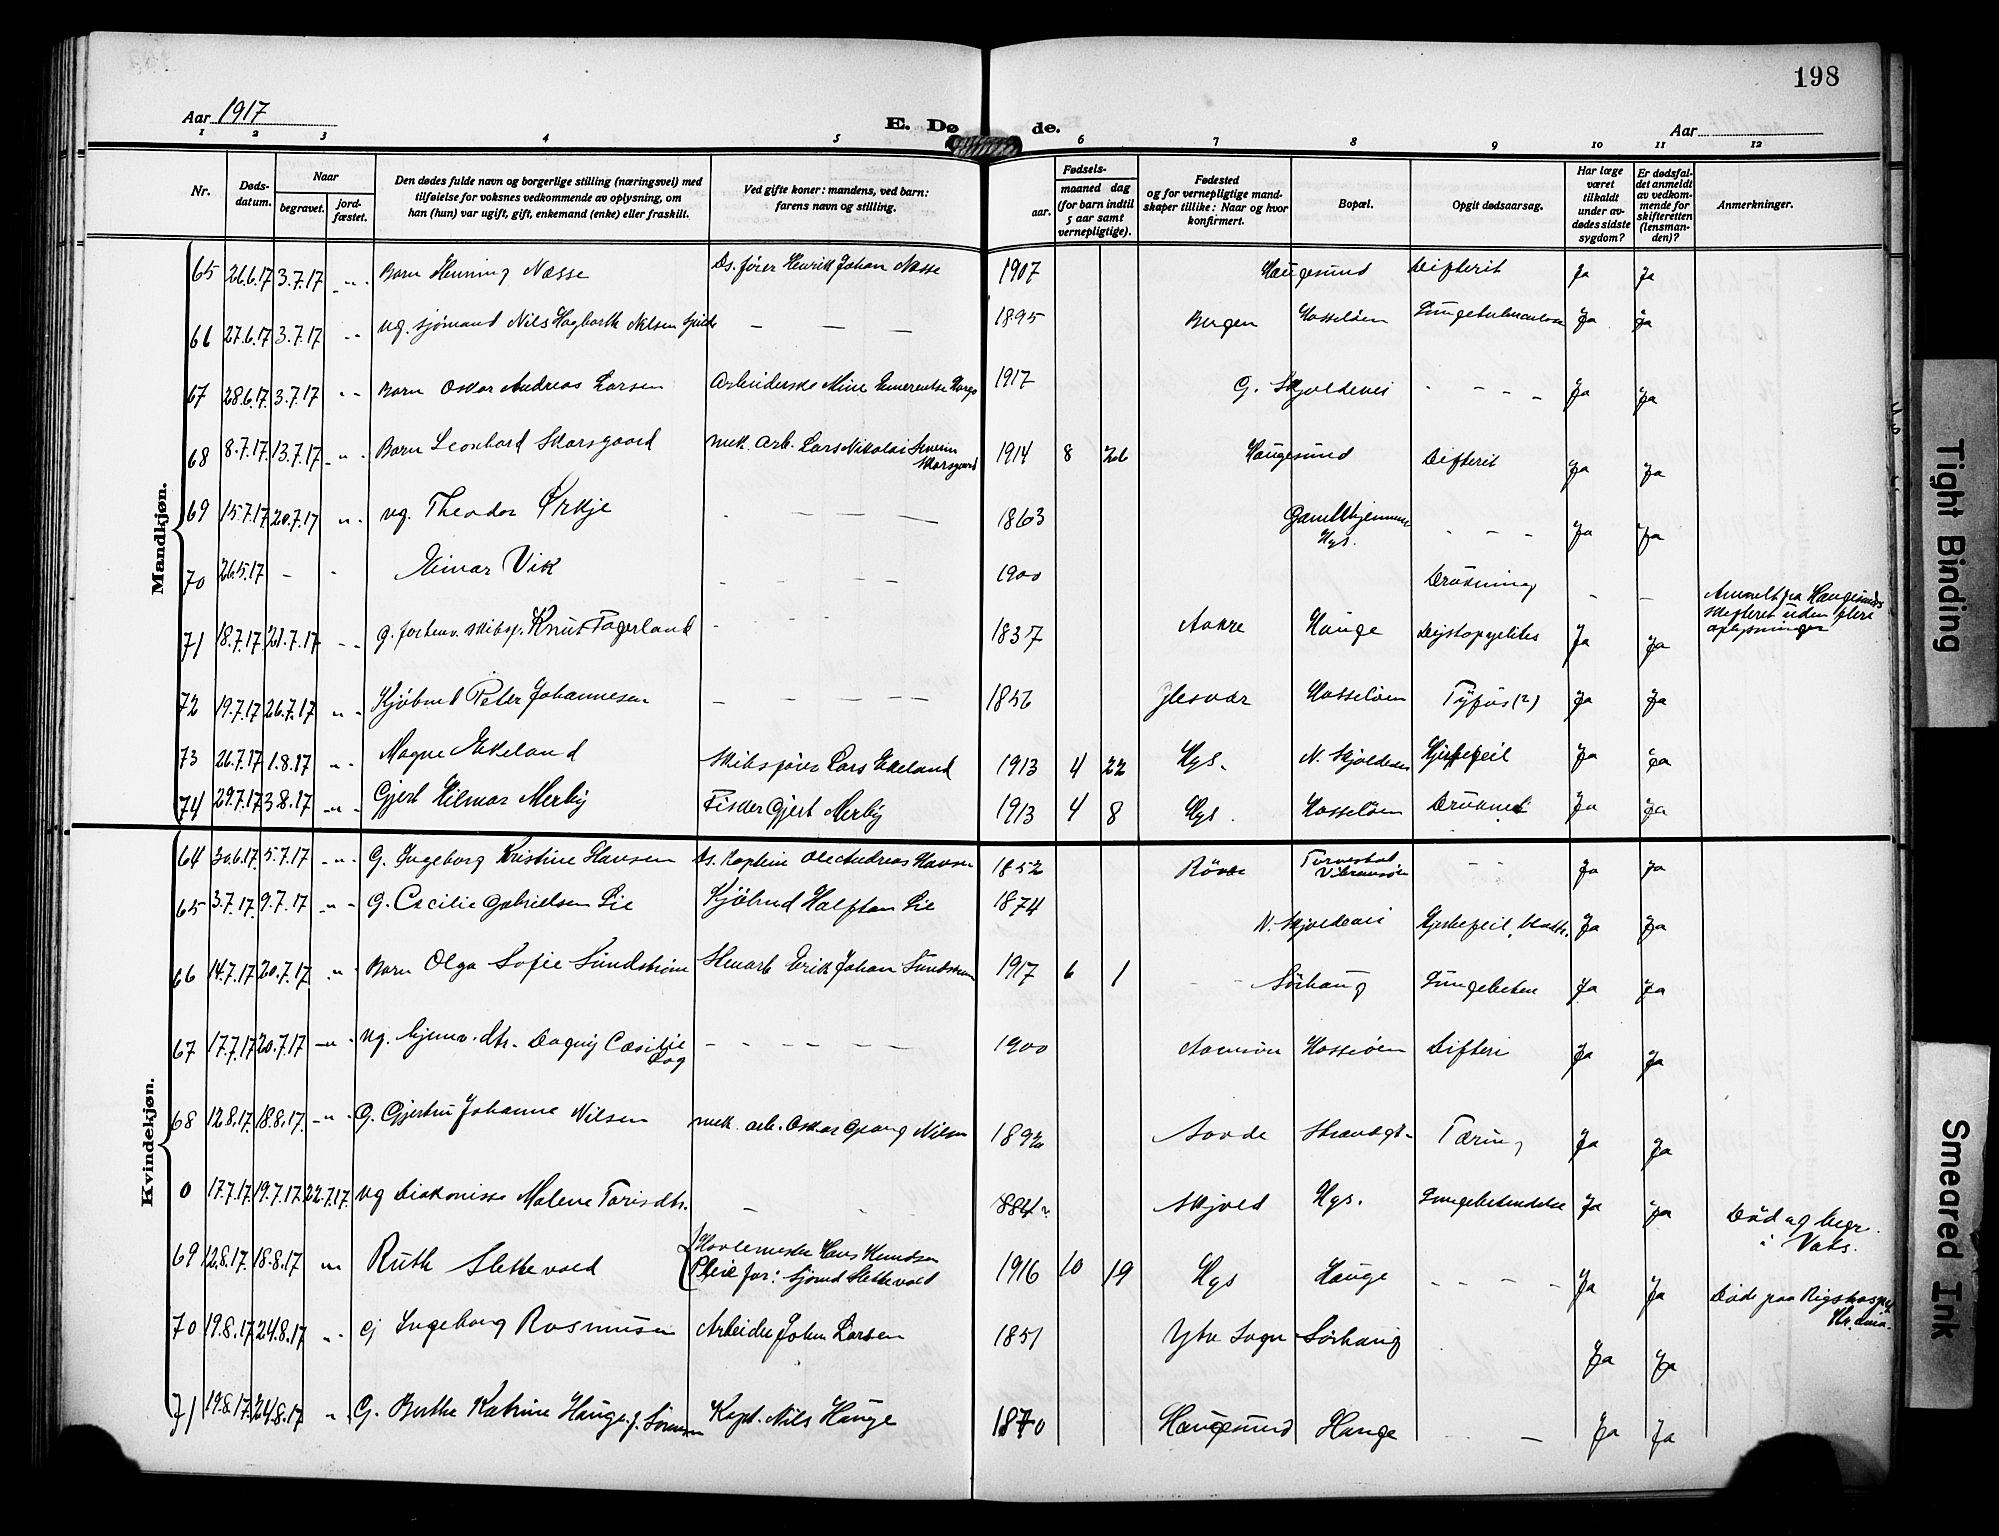 198
Aar 1917
E. Dø de.
Aar
1 2 3 4 5 6 7 8 9 10 11 12
Nr.
Døds-
datum.
Naar
begravet.
jord-
fæstet.
Den dødes fulde navn og borgerlige stilling (næringsvei) med
tilføielse for voksnes vedkommende av oplysning, om
han (hun) var ugift, gift, enkemand (enke) eller fraskilt.
Ved gifte koner: mandens, ved barn:
farens navn og stilling.
Fødsels-
aar.
maaned dag
(for barn indtil
5 aar samt
vernepligtige).
Fødested
og for vernepligtige mand-
skaper tillike: Naar og hvor
konfirmert.
Bopæl.
Opgit dødsaarsag.
Har læge
været
tilkaldt
under av-
dødes sidste
sygdom?
Er dødsfal-
det anmeldt
av vedkom-
mende for
skifteretten
(lensman-
den)?
Anmerkninger.
Mandkjøn.
65 26.6.17 3.7.17 -"- Barn Henning Næsse Ds. fører Henrik Johan Næsse 1907 Haugesund Difterit Ja Ja
66 27.6.17 3.7.17 -"- ug. sjömand Nils Hagbarth Nilsen — — — 1895 Bergen Hasseløen Lungetuberculose Ja Ja
67 28.6.17 3.7.17 -"- Barn Oskar Andreas Larsen Arbeiderske Mine 1917 G. Skjoldevei - - - - Ja Ja
68 8.7.17 13.7.17 -"- Barn Leonhard Skarsgaard mek. arb. Lars Nikolai Severin
Skarsgaard 1914 8 26 Haugesund Difterit Ja Ja
69 15.7.17 20.7.17 -"- ug. Theodor Ørkje - — — — 1863 Gamlehjemmet
Hgs. - - - Ja Ja
70 26.5.17 - - Einar Vik - — — — 1900 Drukning - - Anmeldt fra Haugesunds
skifteret uden flere
oplysninger
71 18.7.17 21.7.17 -"- g. forhenv. skibsf. Knut Fagerland - - - 1837 Aakre Hauge Ja Ja
72 19.7.17 26.7.17 -"- Kjöbmd Peter Johannesen — — — — 1856 Glesvær Hasseløen Tyfus (?) Ja Ja
73 26.7.17 1.8.17 -"- Magne Ekeland Skibsfører Lars Ekeland 1913 4 22 Hgs. N. Skjoldevei Hjertefeil Ja Ja
74 29.7.17 3.8.17 -"- Gjert Hilmar Merby Fisker Gjert Merby 1913 4 8 Hgs. Hasseløen Druknet Ja Ja
Kvindekjøn.
64 30.6.17 5.7.17 -"- G. Ingeborg Kristine Hansen Ds. Kaptein Ole Andreas Hansen 1852 Torvestad
Vibrandsöen - - Ja Ja
65 3.7.17 9.7.17 -"- G. Cecilie Gabrielsen Lie Kjöbmd Halftan Lie 1874 N. Skjoldevei Hjertefeil, Ja Ja
66 14.7.17 20.7.17 -"- Barn Olga Sofie Sundström Stuart Erik Johan Sundström 1917 6 1 - - Sörhaug Ja Ja
67 17.7.17 20.7.17 -"- ug. hjemv. dtr. Dagny Cæsilie
— — — — 1900 Hasseløen Difteri Ja Ja
68 12.8.17 18.8.17 -"- G. Gjertru Johanne Nilsen mek. arb. Oskar Georg Nilsen 1892 Strandgt. Tæring Ja Ja
0 17.7.17 19.7.17 22.7.17 ug Diakonisse Malene Torisdtr. — 1884 Skjold Hgs. Lungebetændelse Ja Ja Död og begr.
i Vats.
69 12.8.17 18.8.17 -"- Ruth Slettevold Hans Knudsen
Pleie far: Sjömd Slettevold 1916 10 19 Hgs Hauge - - - - Ja Ja
70 19.8.17 24.8.17 -"- Gj Ingeborg Rasmussen Arbeider John Larsen 1851 Ytre Sogn Sörhaug Ja Ja Döde paa Rigshospit.
Kr.ania.
71 19.8.17 24.8.17 -"- G. Berthe Katrine Hauge f. Sörensen Kapt. Nils Hauge 1870 Haugesund Hauge - — Ja Ja
Tight Binding
Smeared Ink